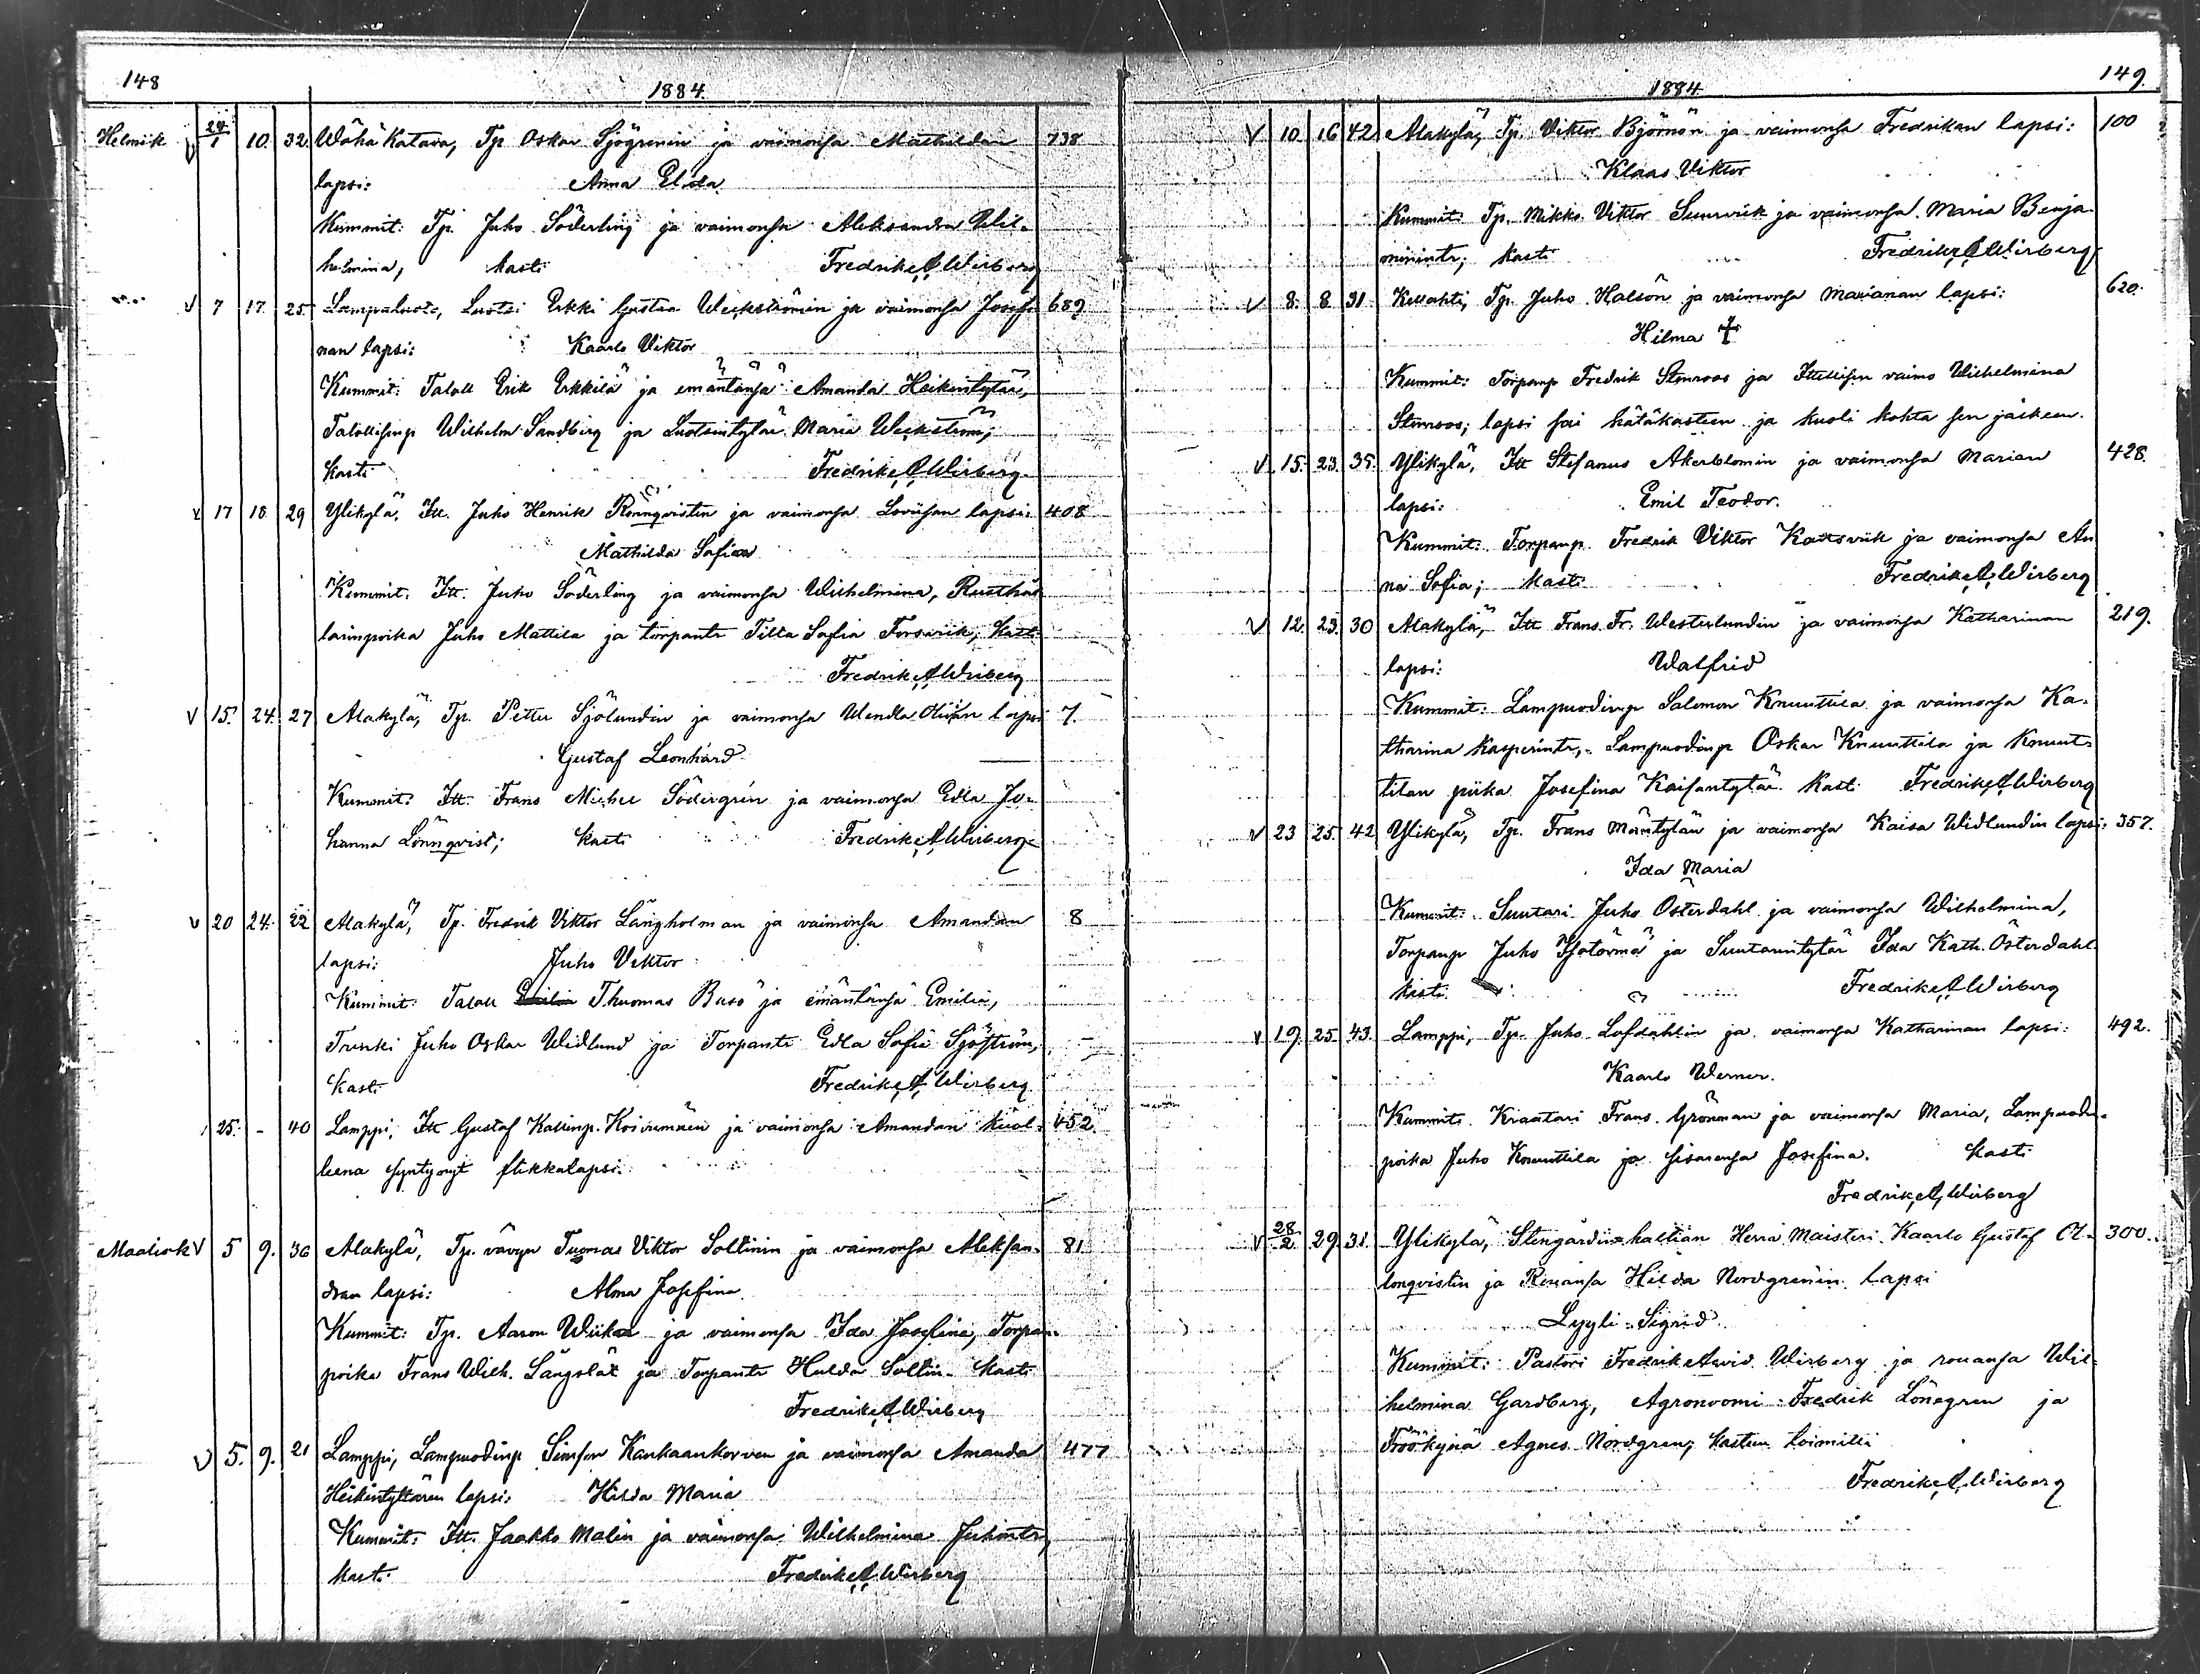 148
1884.
Helmik v 24/1 10. 32. Wähä Katava, Tp. Oskar Sjögrenin ja vaimonsa Mathildan 738
lapsi: Anna Elida
Kummit: Tp. Juho Söderling ja vaimonsa Aleksandra Wil-
helmina, kasti Fredrik A Wirberg
v 7 17. 25. Lampaluoto, Luotsi Erkki Gustaa Weckströmin ja vaimonsa Josefi 689
nan lapsi: Kaarlo Viktor
Kummit: Taloll Erik Erkkilä ja emäntänsä Amanda Heikintytär,
Talollisenp Wilhelm Sandberg ja Luotsintytär Maria Weckström;
kasti Fredrik A Wirberg
v 17 18 29 Ylikylä, Itt. Juho Henrik Rönnqvistin ja vaimonsa Loviisan lapsi: 408
Mathilda Sofia
Kummit. Itt. Juho Söderling ja vaimonsa Wilhelmina, Rusthol
larinpoika Juho Mattila ja torpantr Tilda Sofia Forsvik, kast:
Fredrik A Wirberg
v 15. 24. 27 Alakylä, Tp. Petter Sjölundin ja vaimonsa Wendla Olivian lapsi 7.
Gustaf Leonhard
Kummit: Itt. Frans Michel Södergrén ja vaimonsa Edla Jo-
hanna Lönnqvist; kasti Fredrik A Wirberg
v 20 24. 22 Alakylä, Tp. Fredrik Viktor Långholman ja vaimonsa Amandan 8
lapsi: Juho Viktor
Kummit: Taloll Emilia Thuomas Busö ja emäntänsä Emilia,
Trenki Juho Oskar Widlund ja Torpantr Edla Sofia Sjöström,
kasti Fredrik A Wirberg
25. - 40 Lamppi, Itt Gustaf Kallinp. Koivumäen ja vaimonsa Amandan kuol- 452.
leena syntynyt flikkalapsi.
Maalisk v 5 9. 36 Alakylä, Tp. vävyn Tuomas Viktor Soltinin ja vaimonsa Aleksan- 81
dran lapsi: Alma Josefina
Kummit: Tp. Aaron Wiik ja vaimonsa Ida Josefina, Torpan-
poika Frans Wilh. Långslät ja Torpantr Hulda Soltin. kasti
Fredrik A Wirberg
v 5. 9. 21 Lamppi, Lampuodinp Simson Kankaankorven ja vaimonsa Amanda 477
Heikintyttären lapsi: Hilda Maria
Kummit: Itt. Jaakko Malin ja vaimonsa Wilhelmina Juhontr,
kasti. Fredrik A Wirberg
149.
1884
v 10 16 42. Alakylä, Tp. Viktor Björnön ja vaimonsa Fredrikan lapsi: 100
Klaas Viktor
Kummit: Tp. Mikko Viktor Sunrvik ja vaimonsa Maria Benja-
minintr, kasti Fredrik A Wirberg
v 8. 8 31 Kellahti, Tp. Juho Halsön ja vaimonsa Marianan lapsi: 620.
Hilma †
Kummit: Torpanp Fredrik Stenroos ja Itellisen vaimo Wilhelmina
Stenroos; lapsi sai hätäkasteen ja kuoli kohta sen jälkeen.
v 15. 23. 35. Ylikylä, Itt Stefanus Åkerblomin ja vaimonsa Marian 428.
lapsi: Emil Teodor.
Kummit: Torpanp. Fredrik Viktor Kattsvik ja vaimonsa An
na Sofia; kasti Fredrik A Wirberg
v 12. 23. 30 Alakylä, Itt Frans. Fr. Westerlundin ja vaimonsa Katharinan 219.
lapsi: Walfrid
Kummit: Lampuodinp Salomon Knuuttila ja vaimonsa Ka-
tharina Kasperintr, Lampuodinp Oskar Knuuttila ja Knuut-
tilan piika Josefina Kaisantytär. kasti Fredrik A Wirberg
v 23 25. 42 Ylikylä, Tp. Frans Mäntylän ja vaimonsa Kaisa Widlundin lapsi: 357.
Ida Maria
Kummit: Suutari Juho Österdahl ja vaimonsa Wilhelmina,
Torpanp Juho Isotörmä ja Suutarintytär Ida Kath. Österdahl
kasti Fredrik A Wirberg
v 19. 25. 43. Lamppi, Tp. Juho Lofdahlin ja vaimonsa Katharinan lapsi: 492.
Kaarlo Werner.
Kummit. Kraatari Frans Grönman ja vaimonsa Maria, Lampuodi-
poika Juho Knuuttila ja sisarensa Josefina. kasti
Fredrik A Wirberg
v 28/2 29. 31. Ylikylä, Stengårdin haltian Herra Maisteri Kaarlo Gustaf A- 300.
lonqvistin ja Rouansa Hilda Nordgrenin lapsi
Lyyli Sigrid
Kummit: Pastori Fredrik Arvid Wirberg ja rouansa Wil-
helmina Gardberg, Agronoomi Fredrik Lönegren ja
Fröökynä Agnes Nordgren; kasteen toimitti
Fredrik A Wirberg